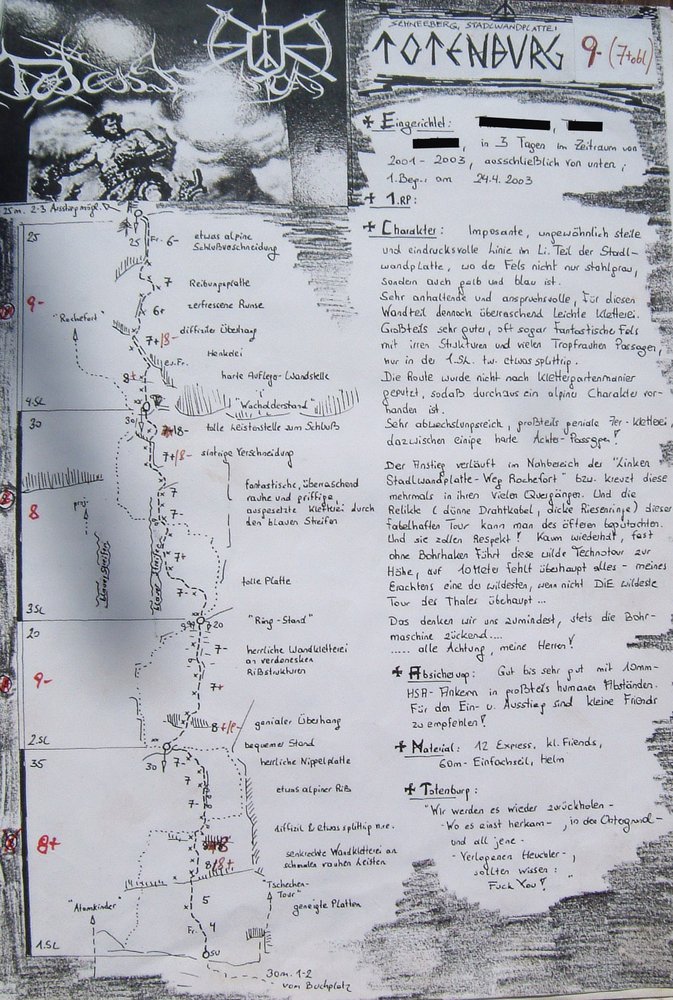 SCHNEEBERG, STADLWANDPLATTE
TOTENBURG 9- (7+obl)
Eingerichtet:
, in 3 Tagen im Zeitraum von
2001 - 2003, ausschließlich von unten;
1. Beg.: am 24.4.2003
1. RP:
Charakter: Imposante, ungewöhnlich steile
und eindrucksvolle Linie im Li. Teil der Stadl-
wandplatte, wo der Fels nicht nur stahlgrau,
sondern auch gelb und blau ist.
Sehr anhaltende und anspruchsvolle, für diesen
Wandteil dennoch überraschend leichte Kletterei.
Großteils sehr guter, oft sogar fantastische Fels
mit irren Stukturen und vielen Tropfrauhen Passagen,
nur in der 1.SL. tw. etwas splittrig.
Die Route wurde nicht nach Klettergartenmanier
geputzt, sodaß durchaus ein alpiner Charakter vor-
handen ist.
Sehr abwechslungsreich, großteils geniale 7er-Kletterei,
dazwischen einige harte Achter-Passagen!
Der Anstieg verläuft im Nahbereich der "Linken
Stadlwandplatte - Weg Rochefort" bzw. kreuzt diese
mehrmals in ihren vielen Quergängen. Und die
Relikte (dünne Drahtkabel, dicke Riesenringe) dieser
fabelhaften Tour kann man des öfteren begutachten.
Und sie zollen Respekt! Kaum wiederholt, fast
ohne Bohrhaken führt diese wilde Technotour zur
Höhe, auf 10 Meter fehlt überhaupt alles - meines
Erachtens eine der wildesten, wenn nicht DiE wildeste
Tour des Thales übchaupt ...
Das denken wir uns zumindest, stets die Bohr-
maschine zückend....
..... alle Achtung, meine Herren!
Absicherung: Gut bis sehr gut mit 10mm-
HSA-Ankern in großteils humanen Abständen.
Für den Ein- u. Ausstieg sind kleine Friends
zu empfehlen!
Material: 12 Express, kl. Friends,
60m-Einfachseil, Helm
Totenburg:
"Wir werden es wieder zurückholen -
- Wo es einst herkam - , in den Ortsgrund -
und all jene -
- Verlogenen Heuchler - ,
sollten wissen:
Fuck You!"
25m. 2-3 Ausstieg mögl.
25
25 Fr. 6-
etwas alpine
Schlußverschneidung
7 Reibungsplatte
6+ zerfressene Runse
9-
"Rochefort"
7+/8- diffiziler Überhang
ev. Fr. Henkelei
8+ harte Aufleger-Wandstelle
"Wacholderstand"
4.SL
30
30
7+/8- tolle Leistenstelle zum Schluß
7+/8- sintrige Verschneidung
fantastische, überraschend
rauhe und griffige,
ausgesetzte Kletterei durch
den blauen Streifen
7
7
7
7+
8
proj.
blauer Streifen
blauer Streifen
tolle Platte
7-
3.SL
"Ring-Stand"
20
20
7- herrliche Wandkletterei
an verdonesken
Rißstrukturen
7+
9-
8+/9- genialer Überhang
2.SL
bequemer Stand
35
30
7- herrliche Nippelplatte
7
7- etwas alpiner Riß
8+
8 diffizil & etwas splittrig
8/8+ senkrechte Wandkletterei an
schmalen rauhen Leisten
"Tschechen-
Tour"
5 geneigte Platten
"Atomkinder"
Fr. 4
1.SL
SU
30m. 1-2
vom Buchplatz